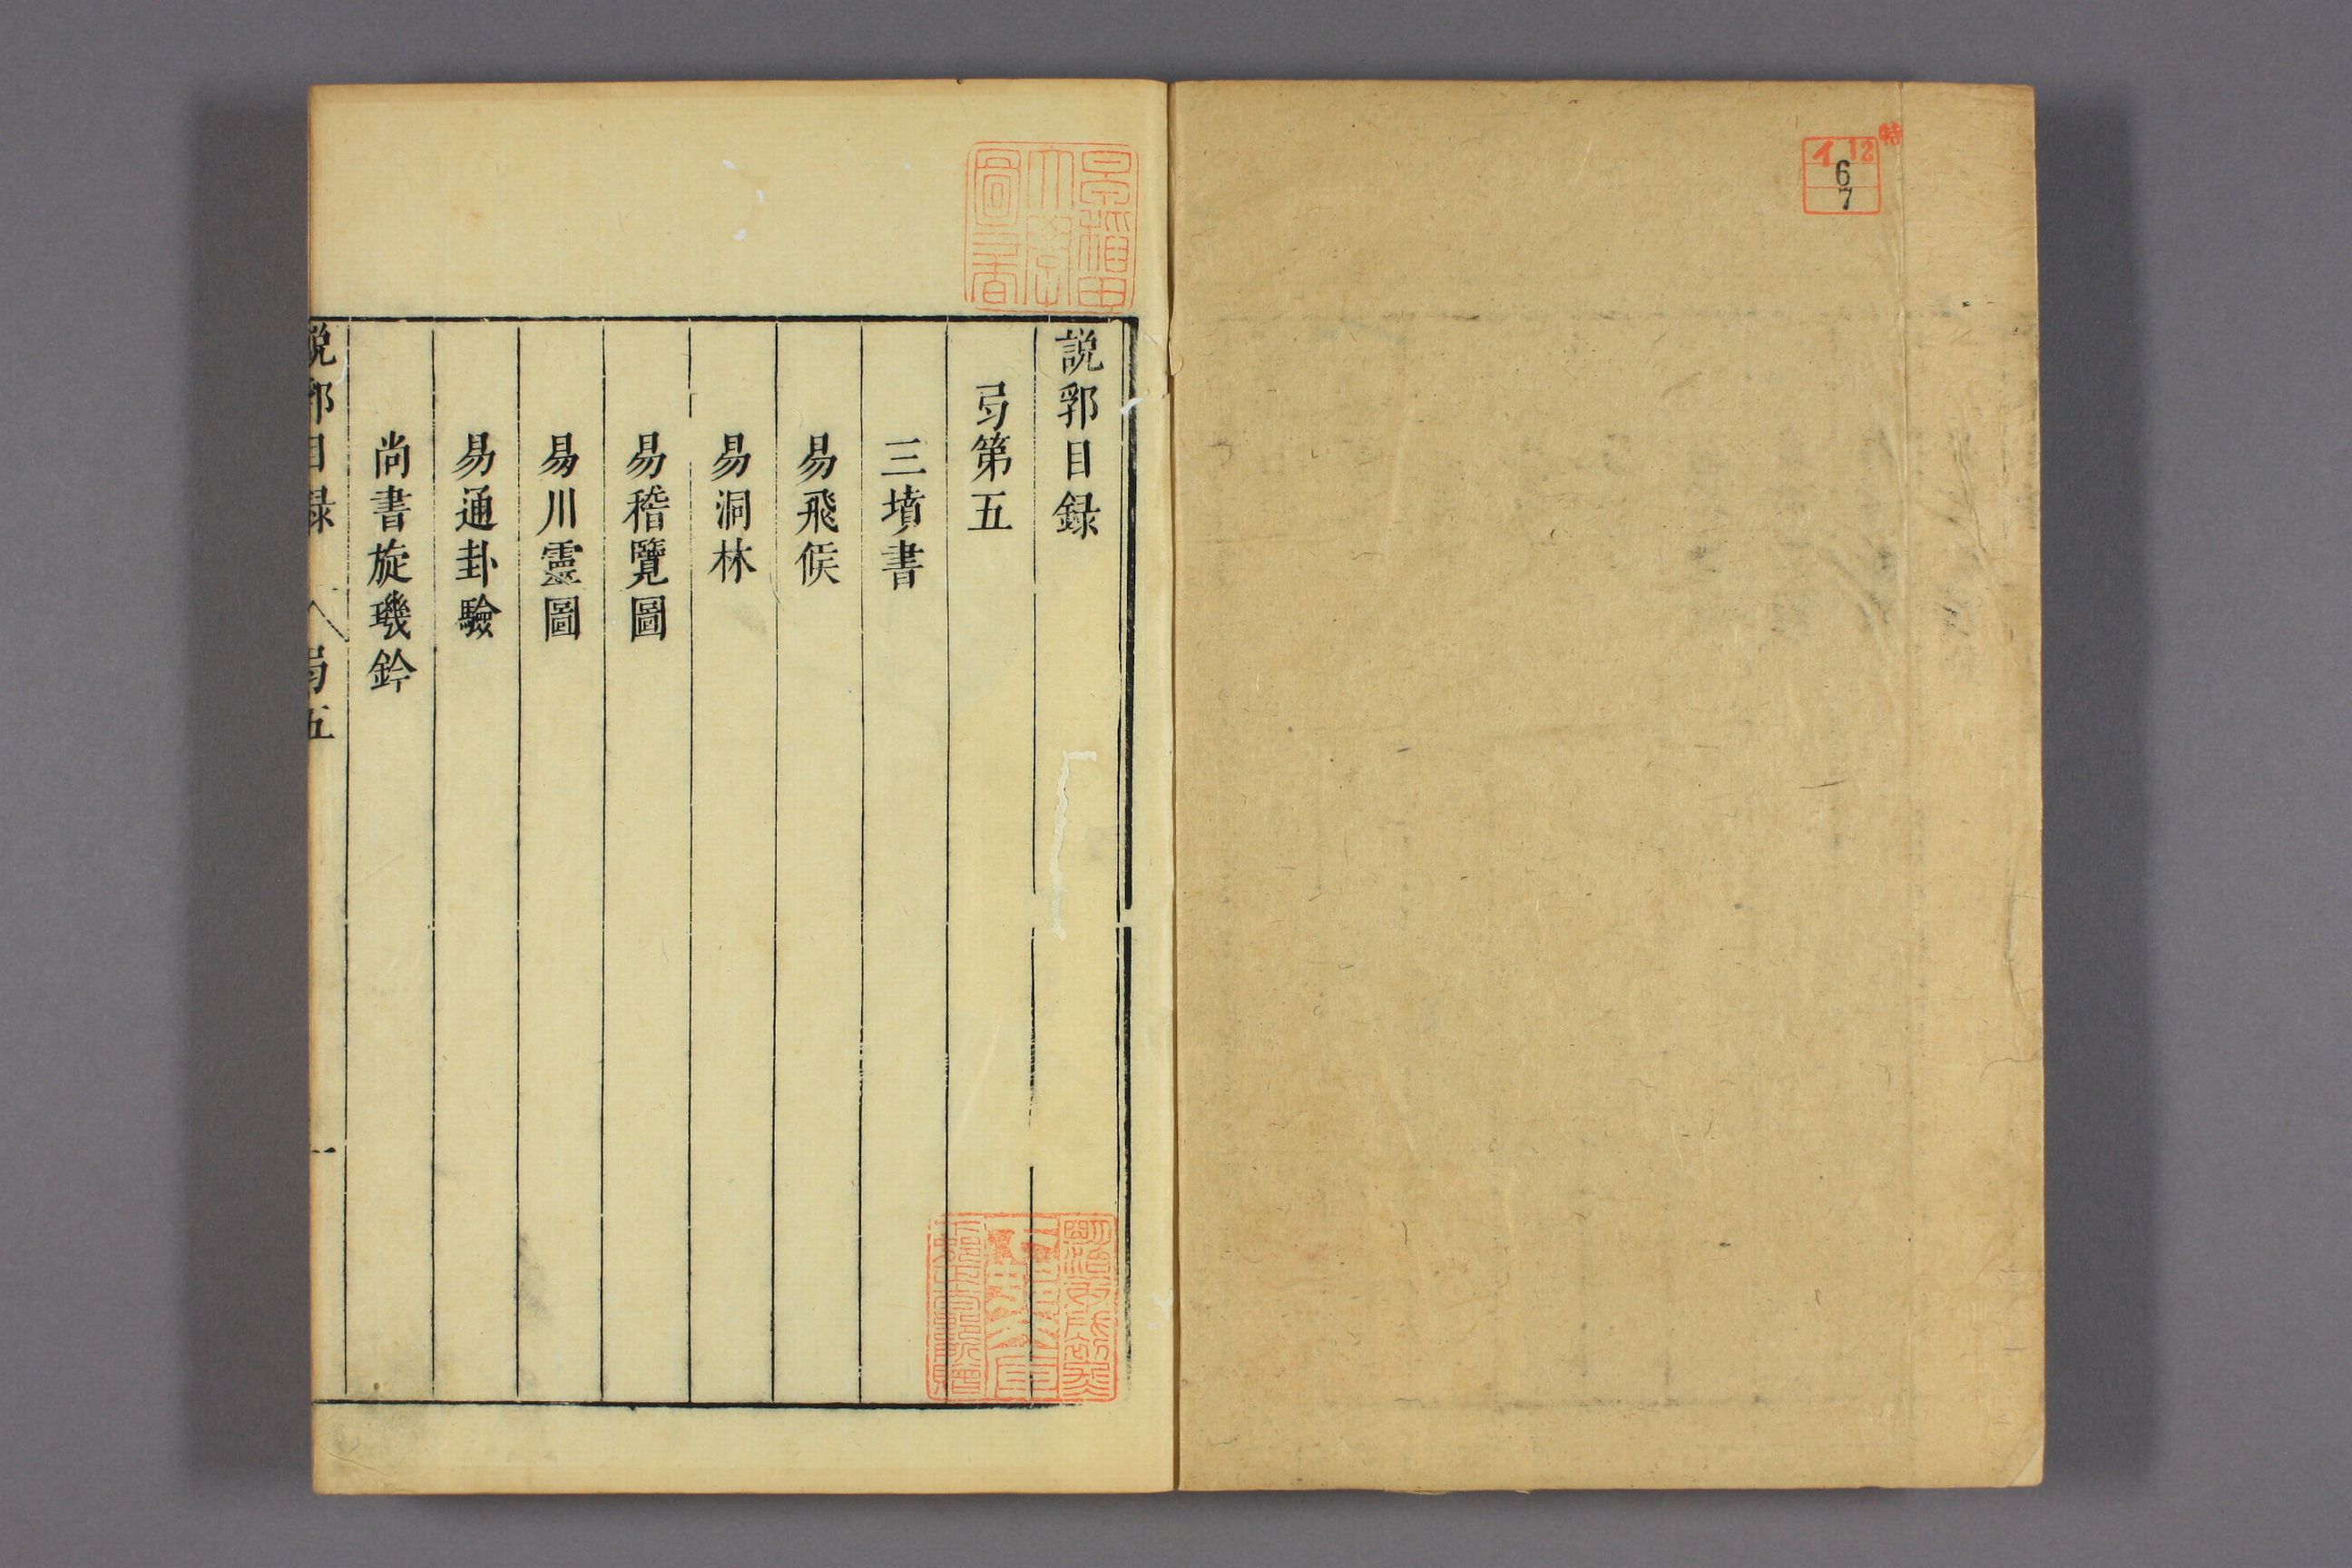 特
イ 12
6
7
早稲田
大學
圖書
說郛目録
弓第五
三墳書
易飛候
易洞林
易稽覽圖
易川靈圖
易通卦驗
尚書旋璣鈐
說郛目録 弓五 一